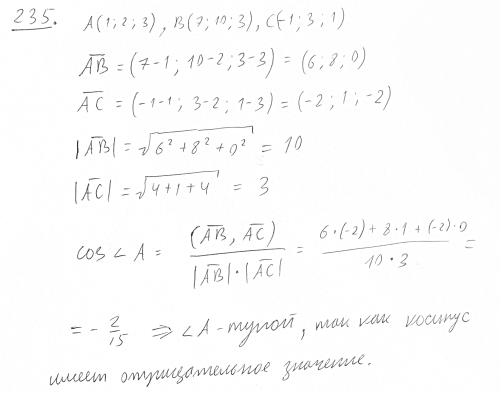 235. A(1; 2; 3), B(7; 10; 3), C(-1; 3; 1)
AB = (7-1; 10-2; 3-3) = (6; 8; 0)
AC = (-1-1; 3-2; 1-3) = (-2; 1; -2)
|AB| = √6² + 8² + 0² = 10
|AC| = √4+1+4 = 3
cos∠A = (AB, AC) / |AB|·|AC| = 6·(-2) + 8·1 + (-2)·0 / 10·3 =
= - 2/15 ⇒ ∠A - тупой, так как косинус
имеет отрицательное значение.